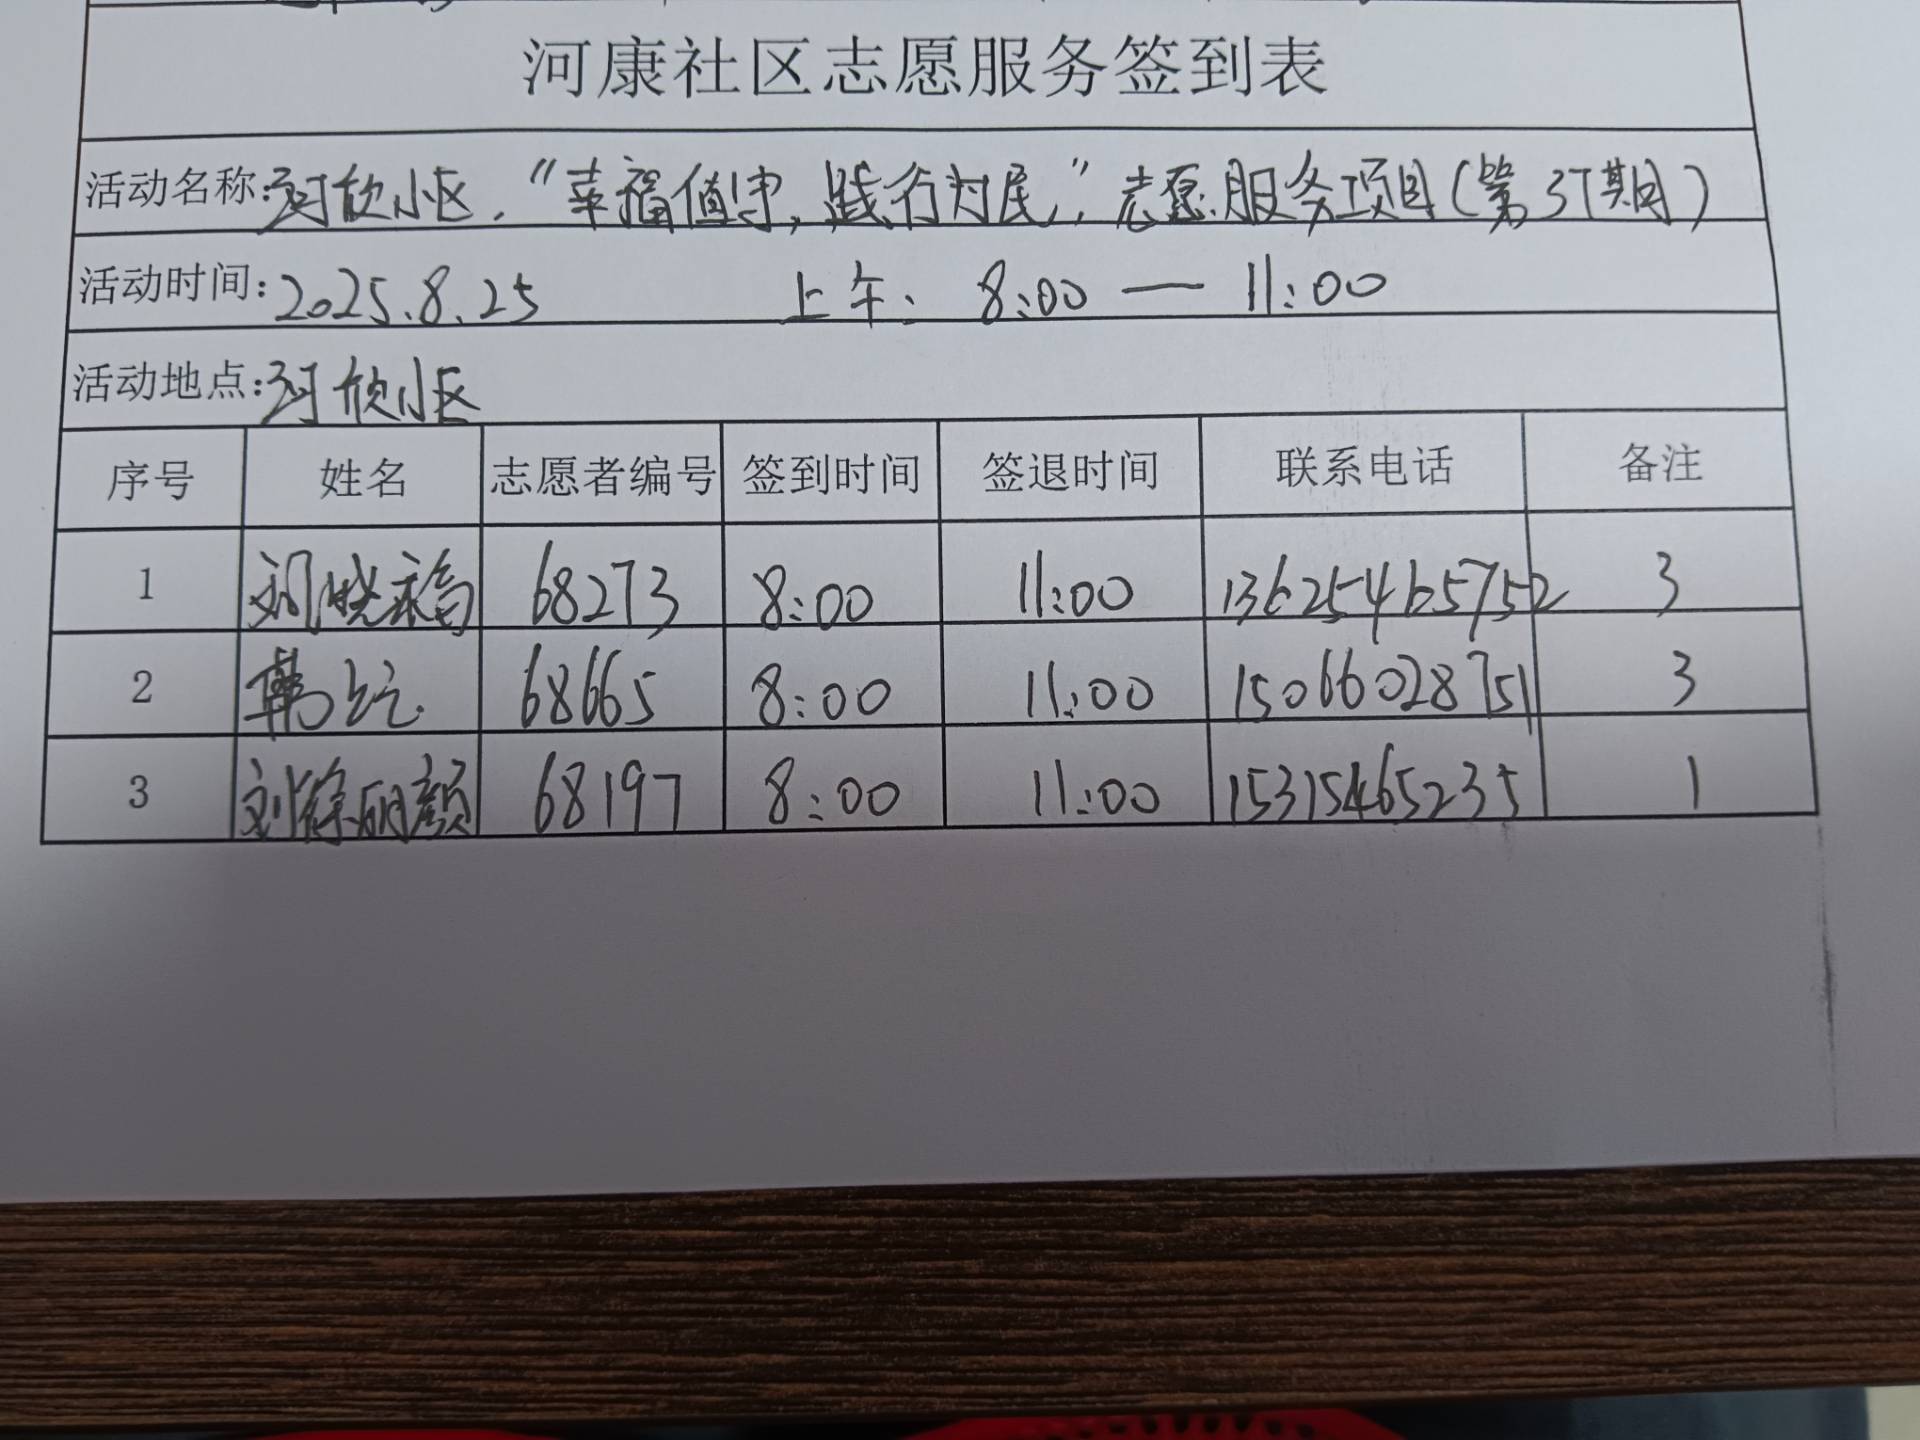 河康社区志愿服务签到表
活动名称:河欣小区，“幸福值守，践行为民”，志愿服务项目(第37期)
活动时间:2025.8.25 上午: 8:00 — 11:00
活动地点:河欣小区
序号 姓名 志愿者编号 签到时间 签退时间 联系电话 备注
1 刘晓 68273 8:00 11:00 13625465752 3
2 韩 68665 8:00 11:00 15066028751 3
3 刘徐丽颜 68197 8:00 11:00 15315465235 1